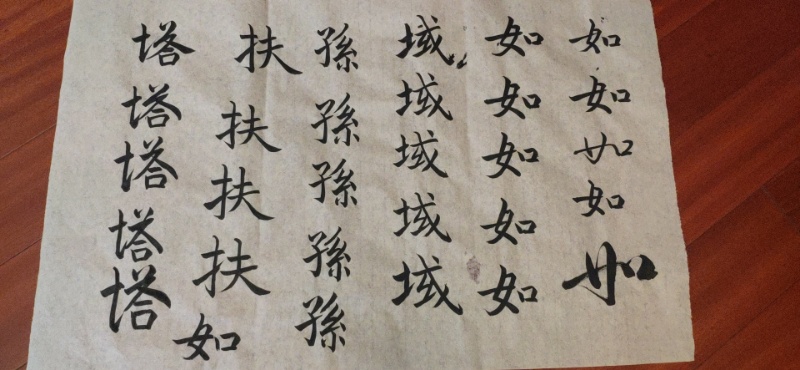 如如如如如
如如如如如
域域域域域
孫孫孫孫孫
扶扶扶扶如
塔塔塔塔塔